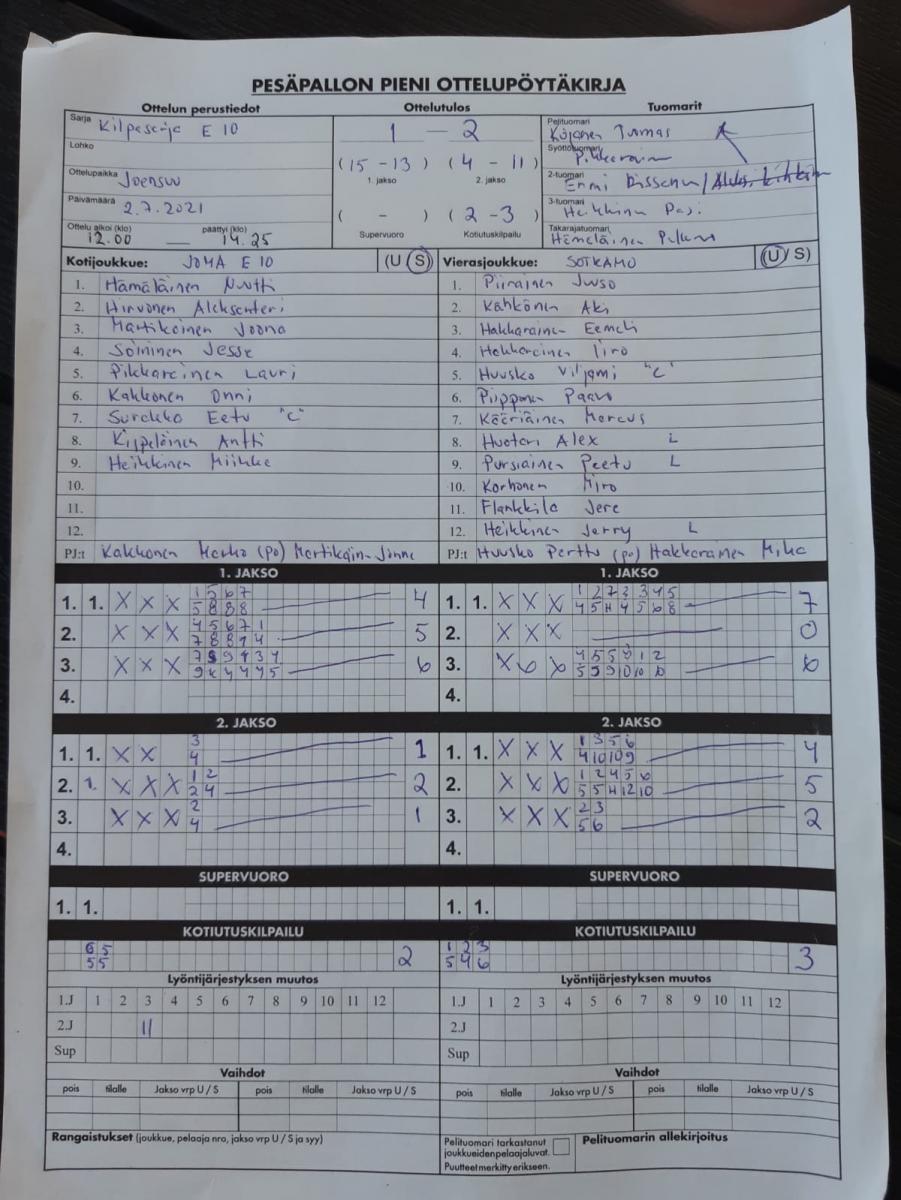 PESÄPALLON PIENI OTTELUPÖYTÄKIRJA
Ottelun perustiedot
Sarja Kilpasarja E 10
Lohko
Ottelupaikka Joensuu
Päivämäärä 2.7.2021
Ottelu alkoi (klo) päättyi (klo)
12.00 — 14.25
Ottelutulos
1 – 2
(15 – 13) (4 – 11)
1. jakso 2. jakso
( - ) (2 – 3)
Supervuoro Kotiutuskilpailu
Tuomarit
Pelituomari
Syöttötuomari
2-tuomari Emmi
3-tuomari Heikkinen Pasi
Takarajatuomari Hämeläinen
Kotijoukkue: JOMA E 10 (U / S)
1. Hämäläinen Nuutti
2. Hirvonen Aleksanteri
3. Martikainen Joona
4. Soininen Jesse
5. Pikkarainen Lauri
6. Kakkonen Onni
7. Surakko Eetu "C"
8. Kippeläinen Antti
9. Heikkinen Miikka
10.
11.
12.
PJ:t Kakkonen Marko (po) Martikain- Jonne
Vierasjoukkue: SOTKAMO (U / S)
1. Piirainen Juuso
2. Kähkönen Aki
3. Hakkarainen Eemeli
4. Hakkarainen Iiro
5. Huusko Viljami "C"
6. Piipponen Paavo
7. Kääriäinen Marcus
8. Huotari Alex L
9. Pursiainen Peetu L
10. Korhonen Miro
11. Flankkila Jere
12. Heikkinen Jerry L
PJ:t Huusko Perttu (po) Hakkarainen Mika
1. JAKSO
1. 1. X X X 1 5 6 7 4
5 8 8 8
2. X X X 4 5 6 7 1 5
7 8 8 1 4
3. X X X 6
4.
1. JAKSO
1. 1. X X X 1 2 2 3 3 4 5 7
4 5 11 4 5 6 8
2. X X X 0
3. X X X 4 5 5 9 1 2 6
5 5 9 10 10 10
4.
2. JAKSO
1. 1. X X 3 1
4
2. 1. X X X 1 2 2
2 4
3. X X X 2 1
4
4.
2. JAKSO
1. 1. X X X 1 3 5 6 4
4 10 10 9
2. X X X 1 2 4 5 6 5
5 5 11 12 10
3. X X X 2 3 2
5 6
4.
SUPERVUORO
1. 1.
SUPERVUORO
1. 1.
KOTIUTUSKILPAILU
6 5 2
5 5
KOTIUTUSKILPAILU
1 2 3 3
5 4 6
Lyöntijärjestyksen muutos
1.J 1 2 3 4 5 6 7 8 9 10 11 12
2.J 11
Sup
Lyöntijärjestyksen muutos
1.J 1 2 3 4 5 6 7 8 9 10 11 12
2.J
Sup
Vaihdot
pois tilalle Jakso vrp U / S pois tilalle Jakso vrp U / S
Vaihdot
pois tilalle Jakso vrp U / S pois tilalle Jakso vrp U / S
Rangaistukset (joukkue, pelaaja nro, jakso vrp U / S ja syy)
Pelituomari tarkastanut
joukkueidenpelaajaluvat.
Puutteet merkitty erikseen.
Pelituomarin allekirjoitus